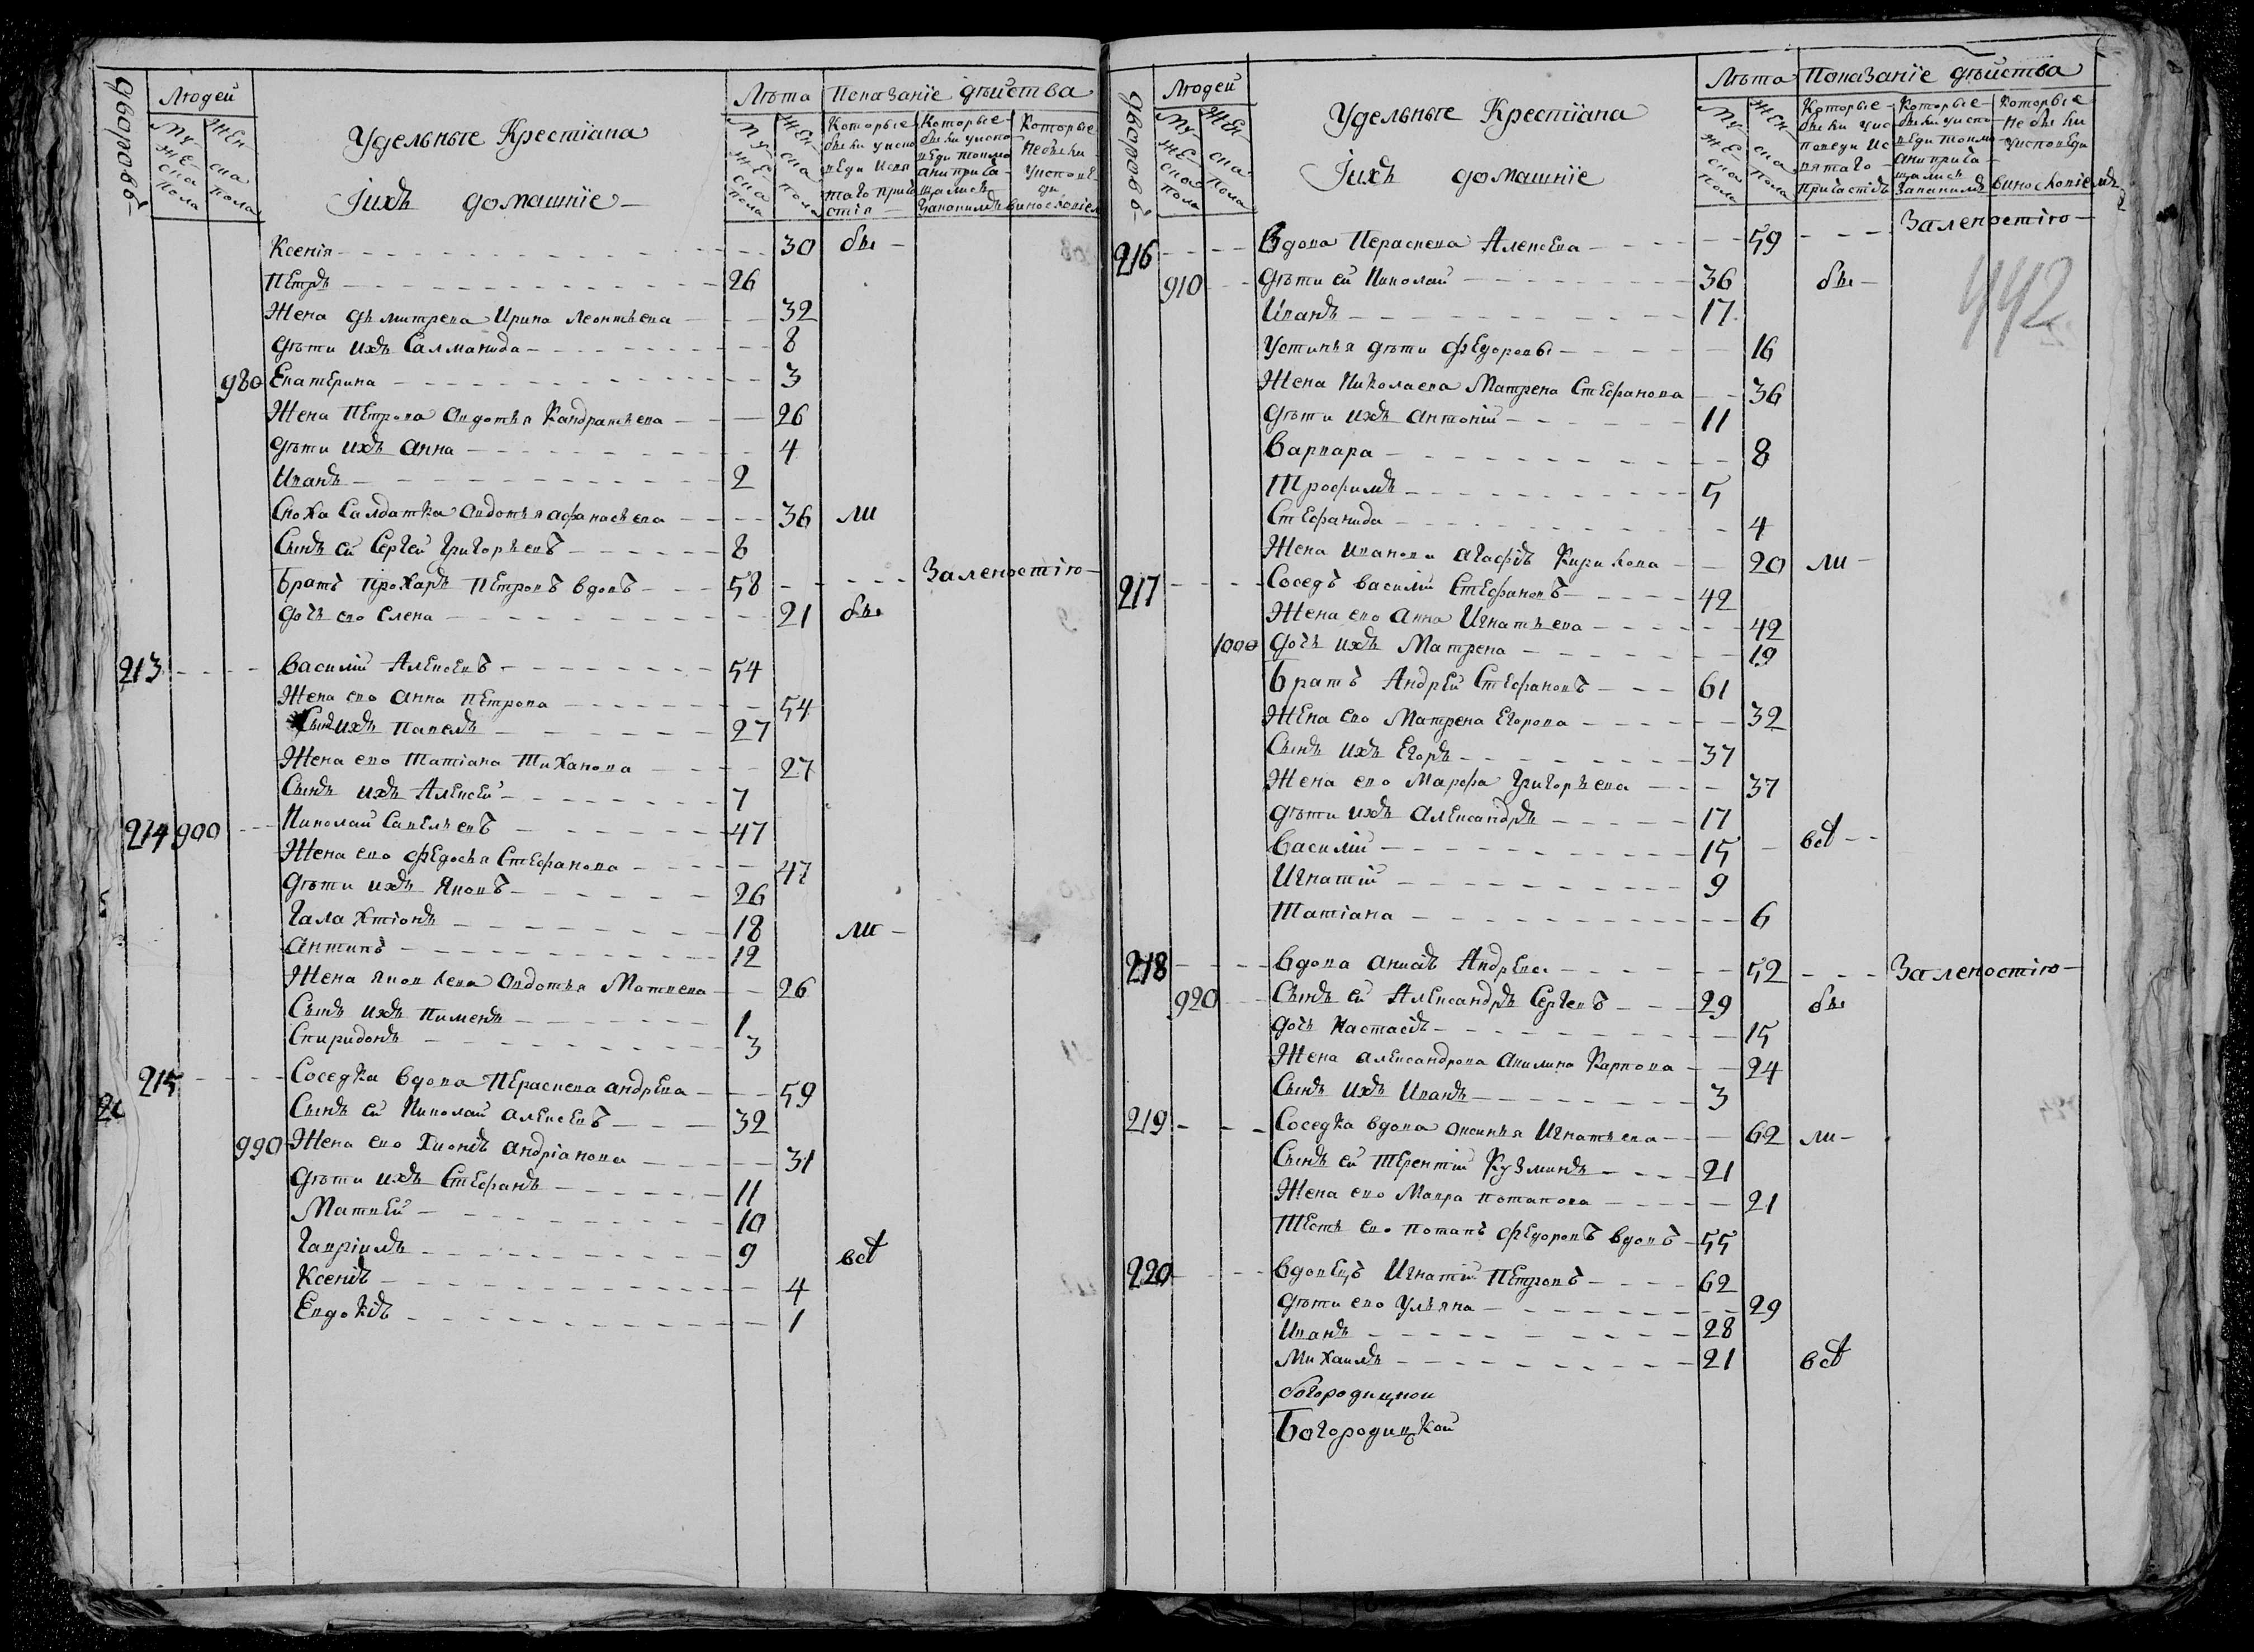 дворовъ
Людей
мужеска пола
женска пола
Удельные Крестіана
Іихъ домашніе
Лѣта
Показаніе дѣиства
мужеска пола
женска пола
Ксенія 30 бы
Петръ 26
Жена дьмитрева Ирина Леонтьева 32
дѣти ихъ Саломанида 8
980 Екатерина 3
Жена Петрова Овдотья Кандратьева 26
дѣти ихъ Анна 4
Иванъ 2
Сноха Салдатка Овдотья афанасьева 36 ли
Сынъ ей Сергей Григорьевъ 8
Братъ Прохаръ Петровъ вдовъ 58 За леностію
дочь ево Елена 21 бы
213 Василій Алексеевъ 54
Жена ево Анна Петрова 54
Сынъ ихъ Павелъ 27
Жена ево Татіана Тиханова 27
Сынъ ихъ Алексей 7
214 900 Николай Савельевъ 47
Жена ево Федосья Стефанова 47
дѣти ихъ Яковъ 26
Галахтіонъ 18 ли
Антипъ 12
Жена Яковлева Овдотья Матвева 26
Сынъ ихъ Пименъ 1
Спиридонъ 3
215 Соседка вдова Пераскева андрева 59
Сынъ ей Николай алексевъ 32
990 Жена ево Хионіѣ андріанова 31
дѣти ихъ Стефанъ 11
Матвей 10
Гавріилъ 9 всѣ
Ксеніѣ 4
Евдокіѣ 1
дворовъ
Людей
мужеска пола
женска пола
Удельные Крестіана
Іихъ домашніе
Лѣта
Показаніе дѣиства
мужеска пола
женска пола
216 Вдова Пераскева Алексева 59 За леностію
442
910 дѣти ей Николай 36 бы
Иванъ 17
Устинья дѣти Федоровы 16
Жена Николаева Матрена Стефанова 36
дѣти ихъ антоній 11
Варвара 8
Трофимъ 5
Стефанида 4
Жена иванова агафіѣ Кирилова 20 ли
217 Соседъ василій Стефановъ 42
Жена ево анна Игнатьева 42
1000 дочь ихъ Матрена 19
Братъ Андрей Стефановъ 61
Жена ево Матрена Егорова 32
Сынъ ихъ Егоръ 37
Жена ево Марфа Григорьева 37
дѣти ихъ александръ 17
Василій 15 всѣ
Игнатій 9
Татіана 6
218 вдова анисіѣ Андрева 52 За леностію
920 Сынъ ей Александръ Сергевъ 29 бы
дочь Настасіѣ 15
Жена александрова акилина Карпова 24
Сынъ ихъ Иванъ 3
219 Соседка вдова оксинья Игнатьева 62 ли
Сынъ ей Терентій Кузминъ 21
Жена ево Мавра потапова 21
Тесть ево потапъ Федоровъ вдовъ 55
220 вдовецъ Игнатій Петровъ 62
дѣти ево Ульяна 29
Иванъ 28
Михаилъ 21 всѣ
богородицкои
Богородицкои